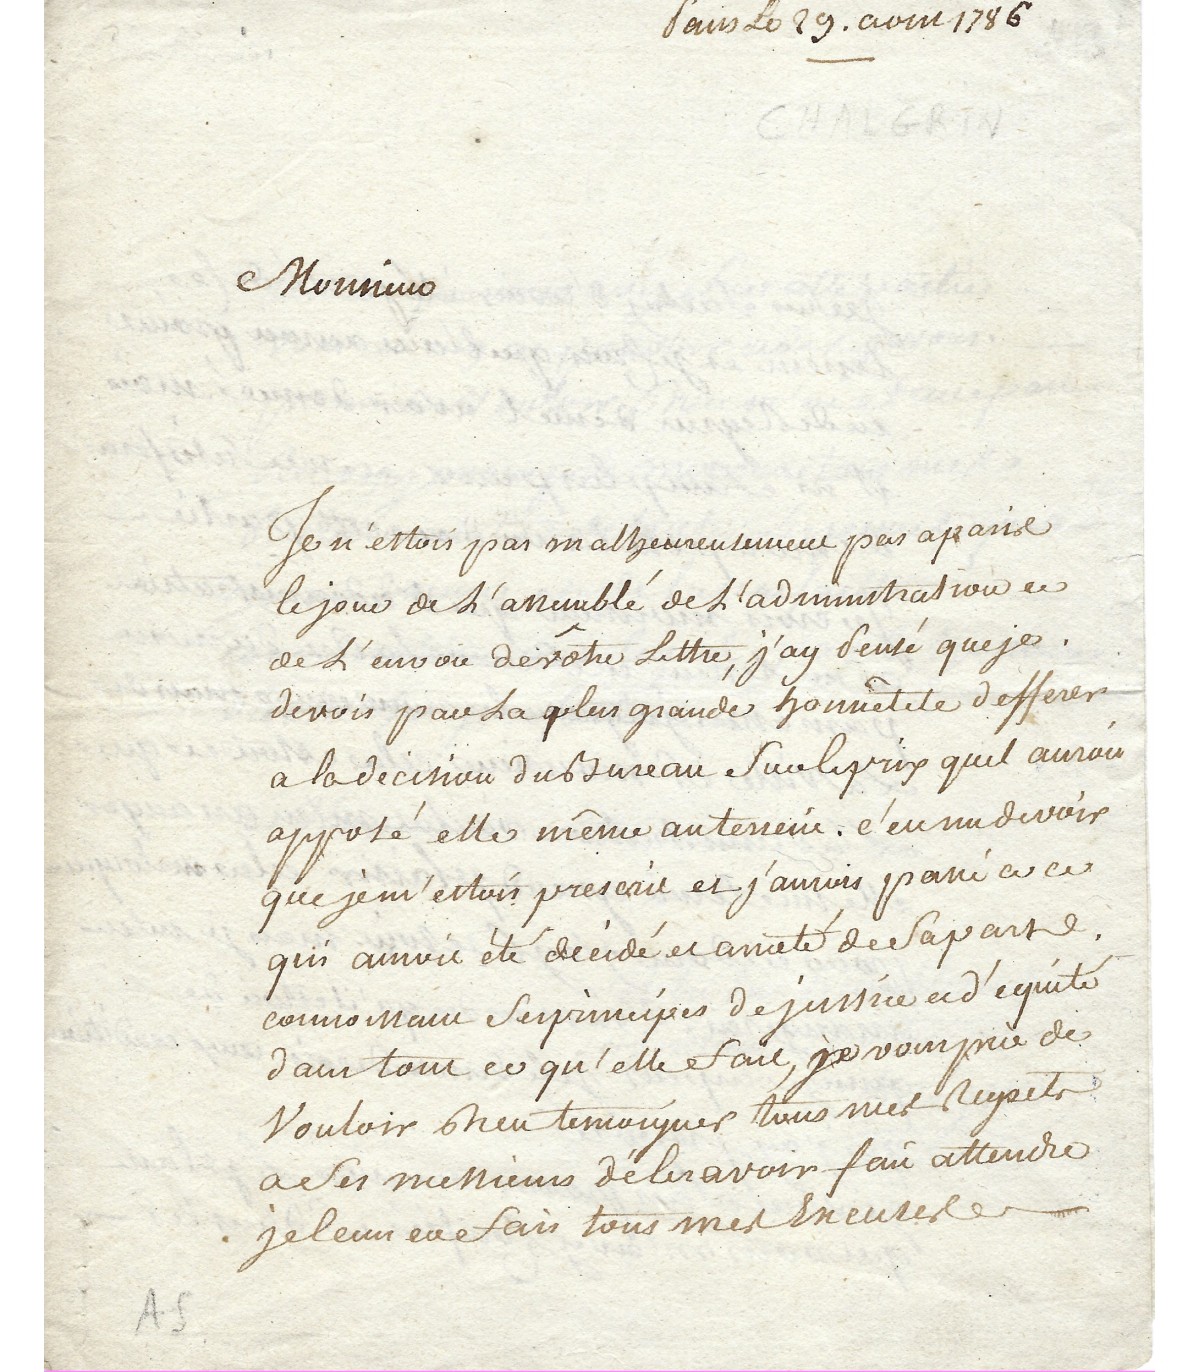 Paris Le 29. aoust 1786
CHALGRIN
Monsieur
Je n'ettois pas malheureusement pas a paris
le jour de L'assemblé de L'administration et
de L'envoie de vôtre Lettre, j'ay Pensé que je
devois par La plus grande honnêteté defferer
a la decision du Bureau Sur le prix quil auroit
apposé elle même anterieur. c'est un devoir
que je m'ettois prescrit et j'aurois passé a ce
qui auroit été décidé et arreté de Sa part.
connoissant Ses principes de justice et d'equité
dans tout ce qu'elle fait, je vous prie de
Vouloir Bien temoigner tous mes Regrets
a Ses messieurs de les avoir fait attendre
je leur en fais tous mes Excuses
AS